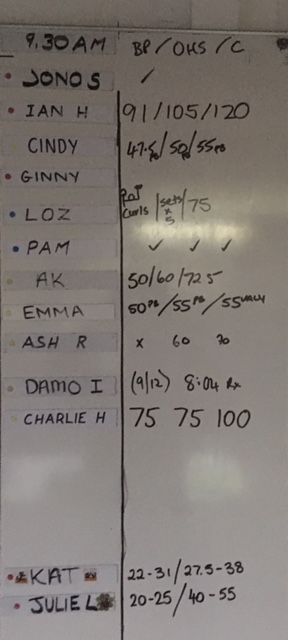 9.30AM BP/OHS/C
JONO S ✓
IAN H 91/105/120
CINDY 47.5PB/50PB/55PB
GINNY
LOZ curls/sets x 5/75
PAM ✓ ✓ ✓
AK 50/60/72.5
EMMA 50PB/55PB/55
ASH R x 60 70
DAMO I (9/12) 8:04 Rx
CHARLIE H 75 75 100
KAT 22-31/27.5-38
JULIE L 20-25/40-55